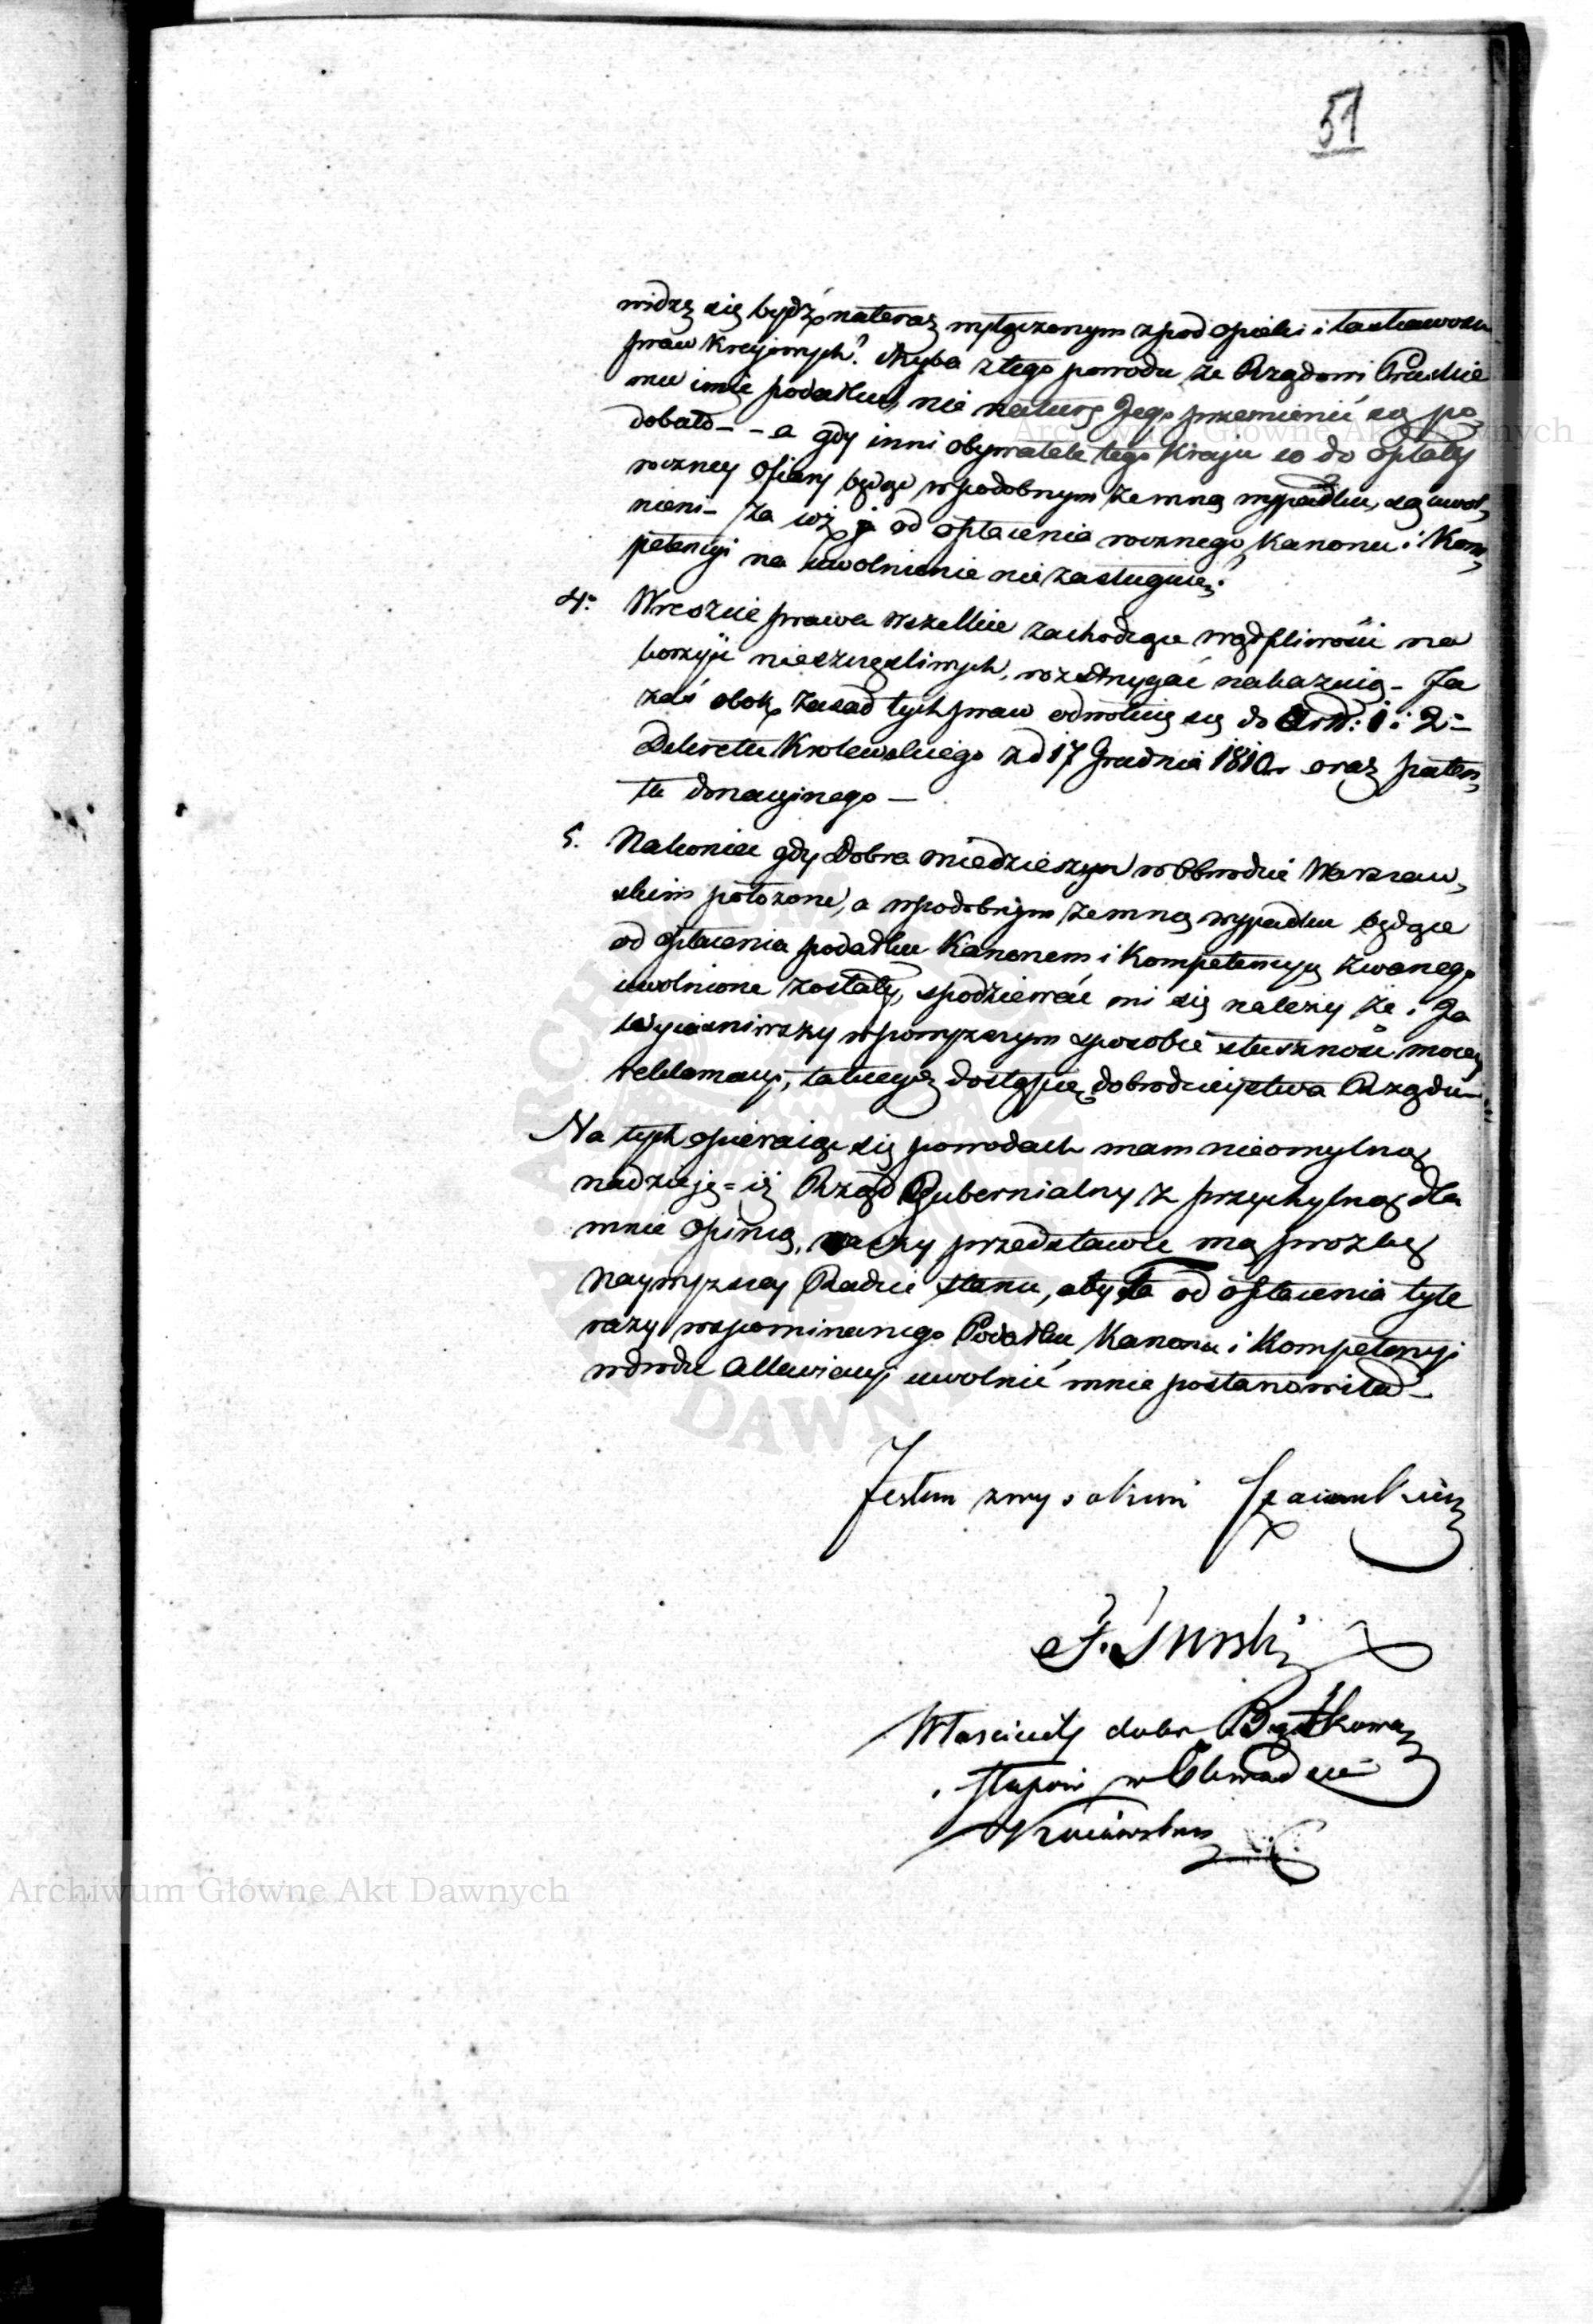 51
widzę się bydź nateraz wyłączonym z pod opieki i łaskawości
praw Kraiowych? Chyba z tego powodu że Rządowi Pruskie
mu imię podatku, nie naturę Jego przemienić się po„
dobało – – a gdy inni obywatele tego Kraju co do opłaty
roczney Ofiary będąc w podobnym ze mną wypadku, są uwol„
nieni – Za cóż ja od opłacenia rocznego Kanonu i Kom„
petencyi na uwolnienie nie zasługuię?
4. Wreszcie prawa wszelkie zachodzące wątpliwości na
korzyść nieszczęśliwych, rozstrzygać nakazuią – Ja
zaś obok zasad tych praw odwołuię się do Art: 1 i 2
Dekretu Krolewskiego z d 17 Grudnia 1810 r oraz paten„
tu donacyinego –
5. Nakoniec gdy Dobra Miedzieszyn w Obwodzie Warszaw„
skim położone, a w podobnym ze mną wypadku będące
od opłacenia podatku Kanonem i Kompetencyą zwanego
uwolnione zostały, spodziewać mi się należy że i Ja
wyiaśniwszy w powyższym sposobie słuszność moiey
reklamacyi, takiegoż dostąpię dobrodzieystwa Rządu –
Na tych opieraiąc się powodach mam nieomylną
nadzieję = iż Rząd Gubernialny z przychylną dla
mnie opinią, raczy przedstawić mą prozbę
Naywyższey Radzie Stanu, aby ta od opłacenia tyle
razy wspominanego Podatku Kanonu i Kompetencyi
w drodze allewiacyi uwolnić mnie postanowiła –
Jestem z wysokim Szacunkiem
Właściciel dobr Bątkowa
i Słupow w Obwodzie
Archiwum Główne Akt Dawnych
Archiwum Główne Akt Dawnych